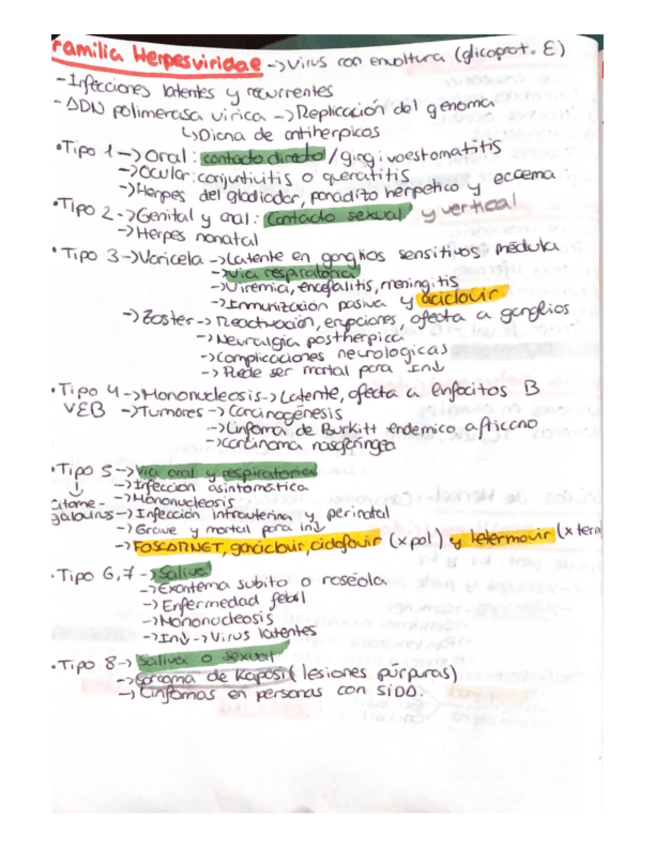 Familia Herpesviridae -> Virus con envoltura (glicoprot. E)
- Infecciones latentes y recurrentes
- ADN polimerasa vírica -> Replicación del genoma
↳ Diana de antiherpicos
• Tipo 1 -> Oral: contacto directo / gingivoestomatitis
-> Ocular: conjuntivitis o queratitis
-> Herpes del gladiador, panadizo herpetico y eccema
• Tipo 2 -> Genital y anal: Contacto sexual y vertical
-> Herpes nonatal
• Tipo 3 -> Varicela -> Latente en ganglios sensitivos médula
-> Vía respiratoria
-> Viremia, encefalitis, meningitis
-> Inmunización pasiva y aciclovir
-> Zoster -> Reactivación, erupciones, afecta a ganglios
-> Neuralgia postherpica
-> Complicaciones neurologicas
-> Puede ser mortal para In↓
• Tipo 4 -> Mononucleosis -> Latente, afecta a linfocitos B
VEB -> Tumores -> Carcinogénesis
-> Linfoma de Burkitt endemico africano
-> Carcinoma nasofaringeo
• Tipo 5 -> Vía oral y respiratoria
↓ -> Infección asintomática
Citome- -> Mononucleosis
galovirus -> Infección intrauterina y perinatal
-> Grave y mortal para in↓
-> FOSCARNET, ganciclovir, cidofovir (x pol) y letermovir (x term
• Tipo 6,7 -> Saliva
-> Exantema subito o roséola
-> Enfermedad febril
-> Mononucleosis
-> In↓ -> Virus latentes
• Tipo 8 -> Saliva o sexual
-> Sarcoma de Kaposi (lesiones púrpuras)
-> Linfomas en personas con SIDA.